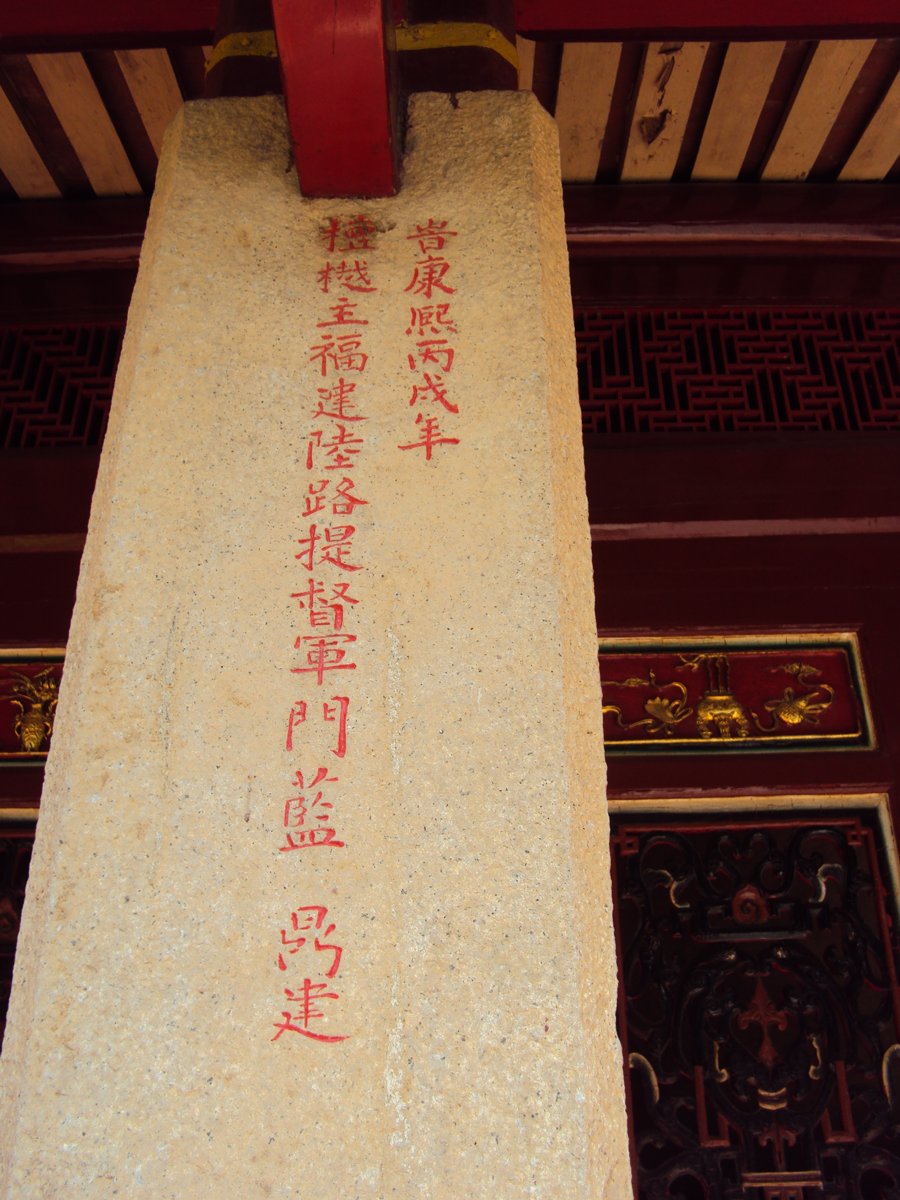 旹康熙丙戌年
檀樾主福建陸路提督軍門藍 鼎建